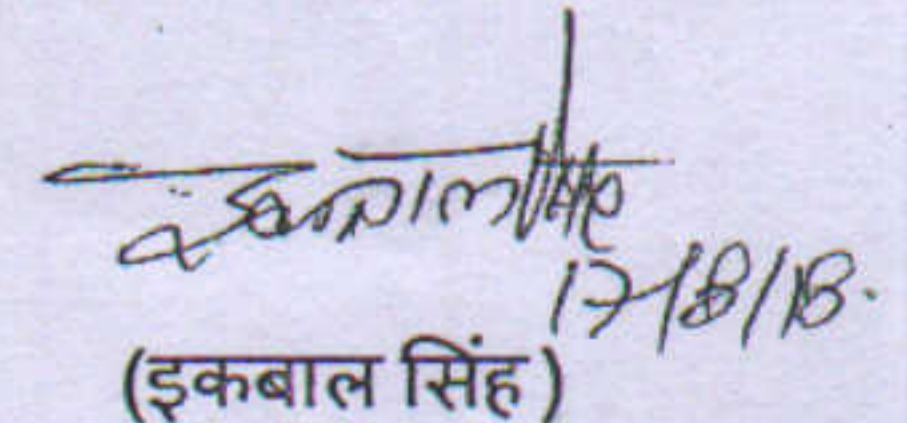 17/8/18.
(इकबाल सिंह)